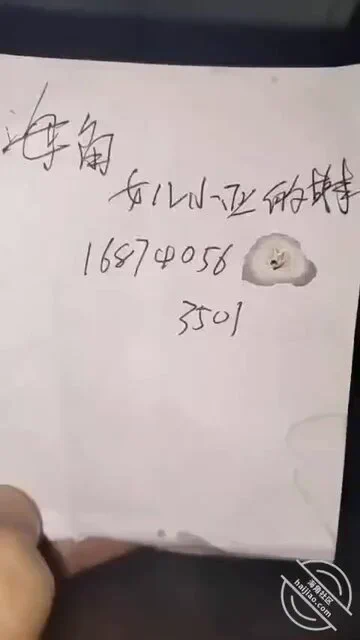 海角
女儿小亚的故事
16874056
3501
海角社区
haijiao.com